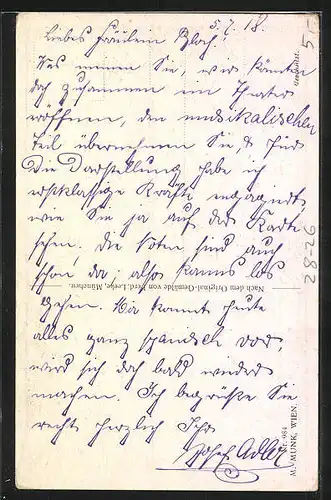 5.7.18.
Liebes Fräulein Bloch!
Was meinen Sie, wir könnten
doch zusammen ein Theater
eröffnen, den musikalischen
Teil übernehmen Sie, & für
die Darstellung habe ich
erstklassige Kräfte engagiert,
wie Sie ja auf der Karte
sehen. Die Noten sind auch
schon da, also kanns los
gehen. Mir kommt heute
alles ganz spanisch vor
wird sich doch bald wieder
machen. Ich begrüße Sie
recht herzlich Ihr
Josef Adler
Nach dem Original-Gemälde von Ferd. Leeke, München.
M. MUNK, WIEN.
Nr. 984
Gesch. gesch.
28-26